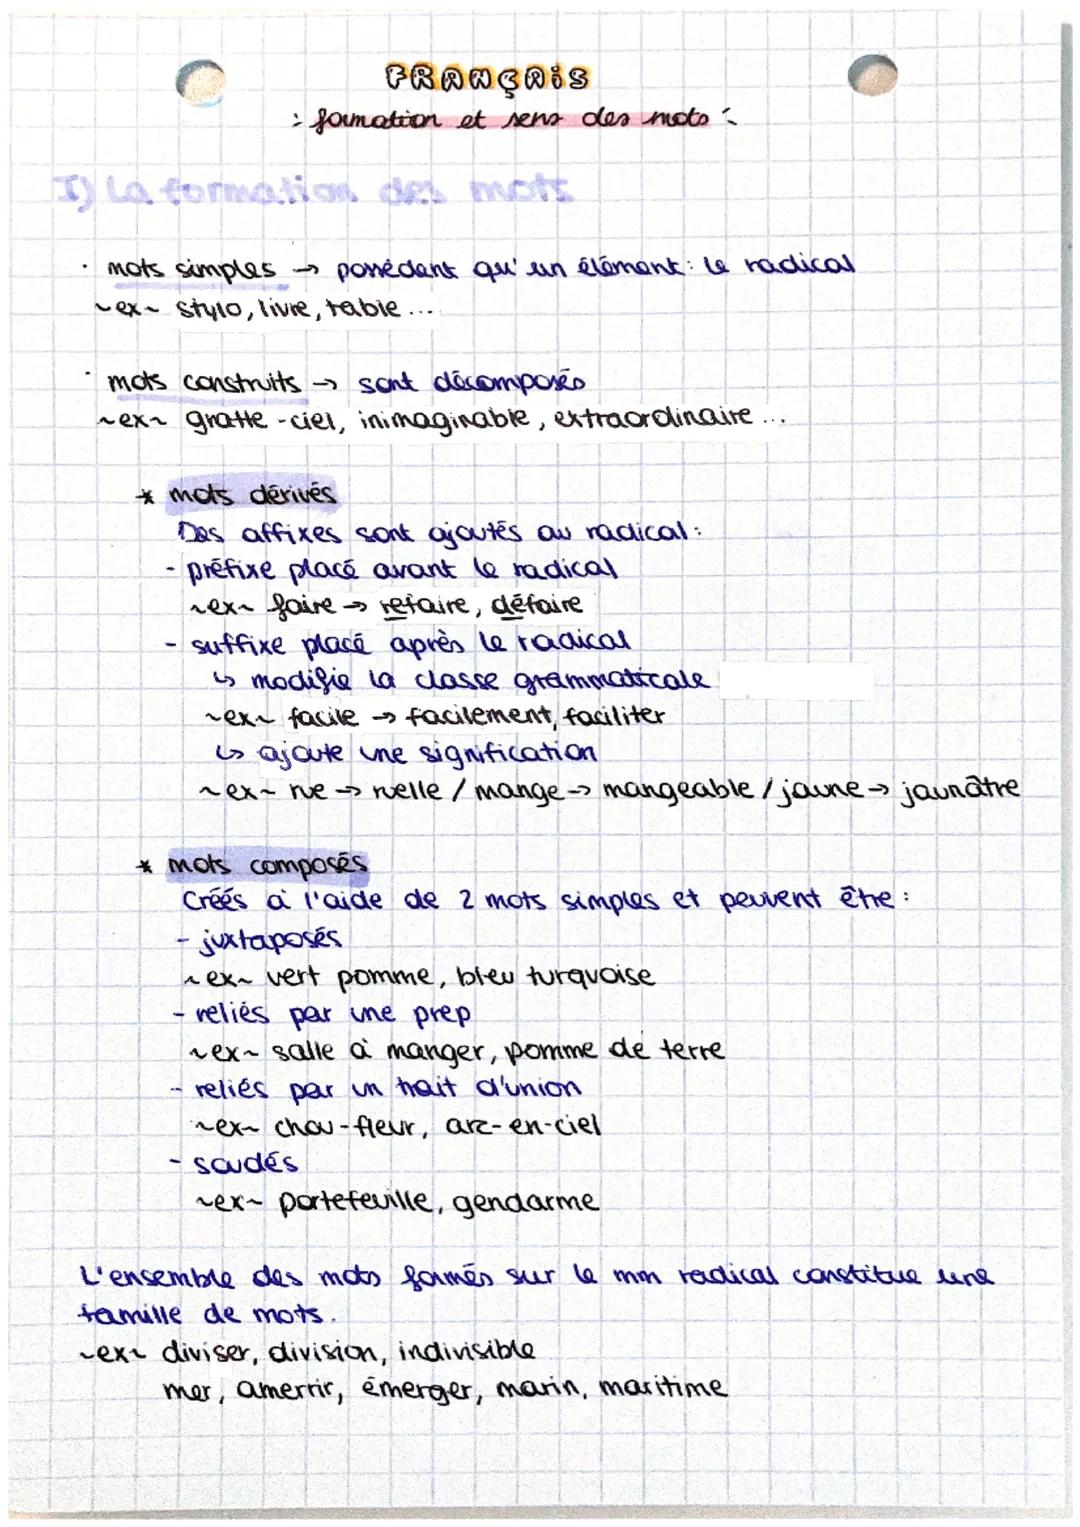 FRANÇAIS
: formation et sens des mots :
I) La formation des mots
· mots simples → possèdent qu'un élément : le radical
~ex~ stylo, livre, table ...
· mots construits → sont décomposés
~ex~ gratte-ciel, inimaginable, extraordinaire ...
* mots dérivés
Des affixes sont ajoutés au radical :
- préfixe placé avant le radical
~ex~ faire → refaire, défaire
- suffixe placé après le radical
↳ modifie la classe grammaticale
~ex~ facile → facilement, faciliter
↳ ajoute une signification
~ex~ rue → ruelle / mange → mangeable / jaune → jaunâtre
* mots composés
Créés à l'aide de 2 mots simples et peuvent être :
- juxtaposés
~ex~ vert pomme, bleu turquoise
- reliés par une prep
~ex~ salle à manger, pomme de terre
- reliés par un trait d'union
~ex~ chou-fleur, arc-en-ciel
- soudés
~ex~ portefeuille, gendarme
L'ensemble des mots formés sur le mm radical constitue une
famille de mots.
~ex~ diviser, division, indivisible
mer, amerrir, émerger, marin, maritime